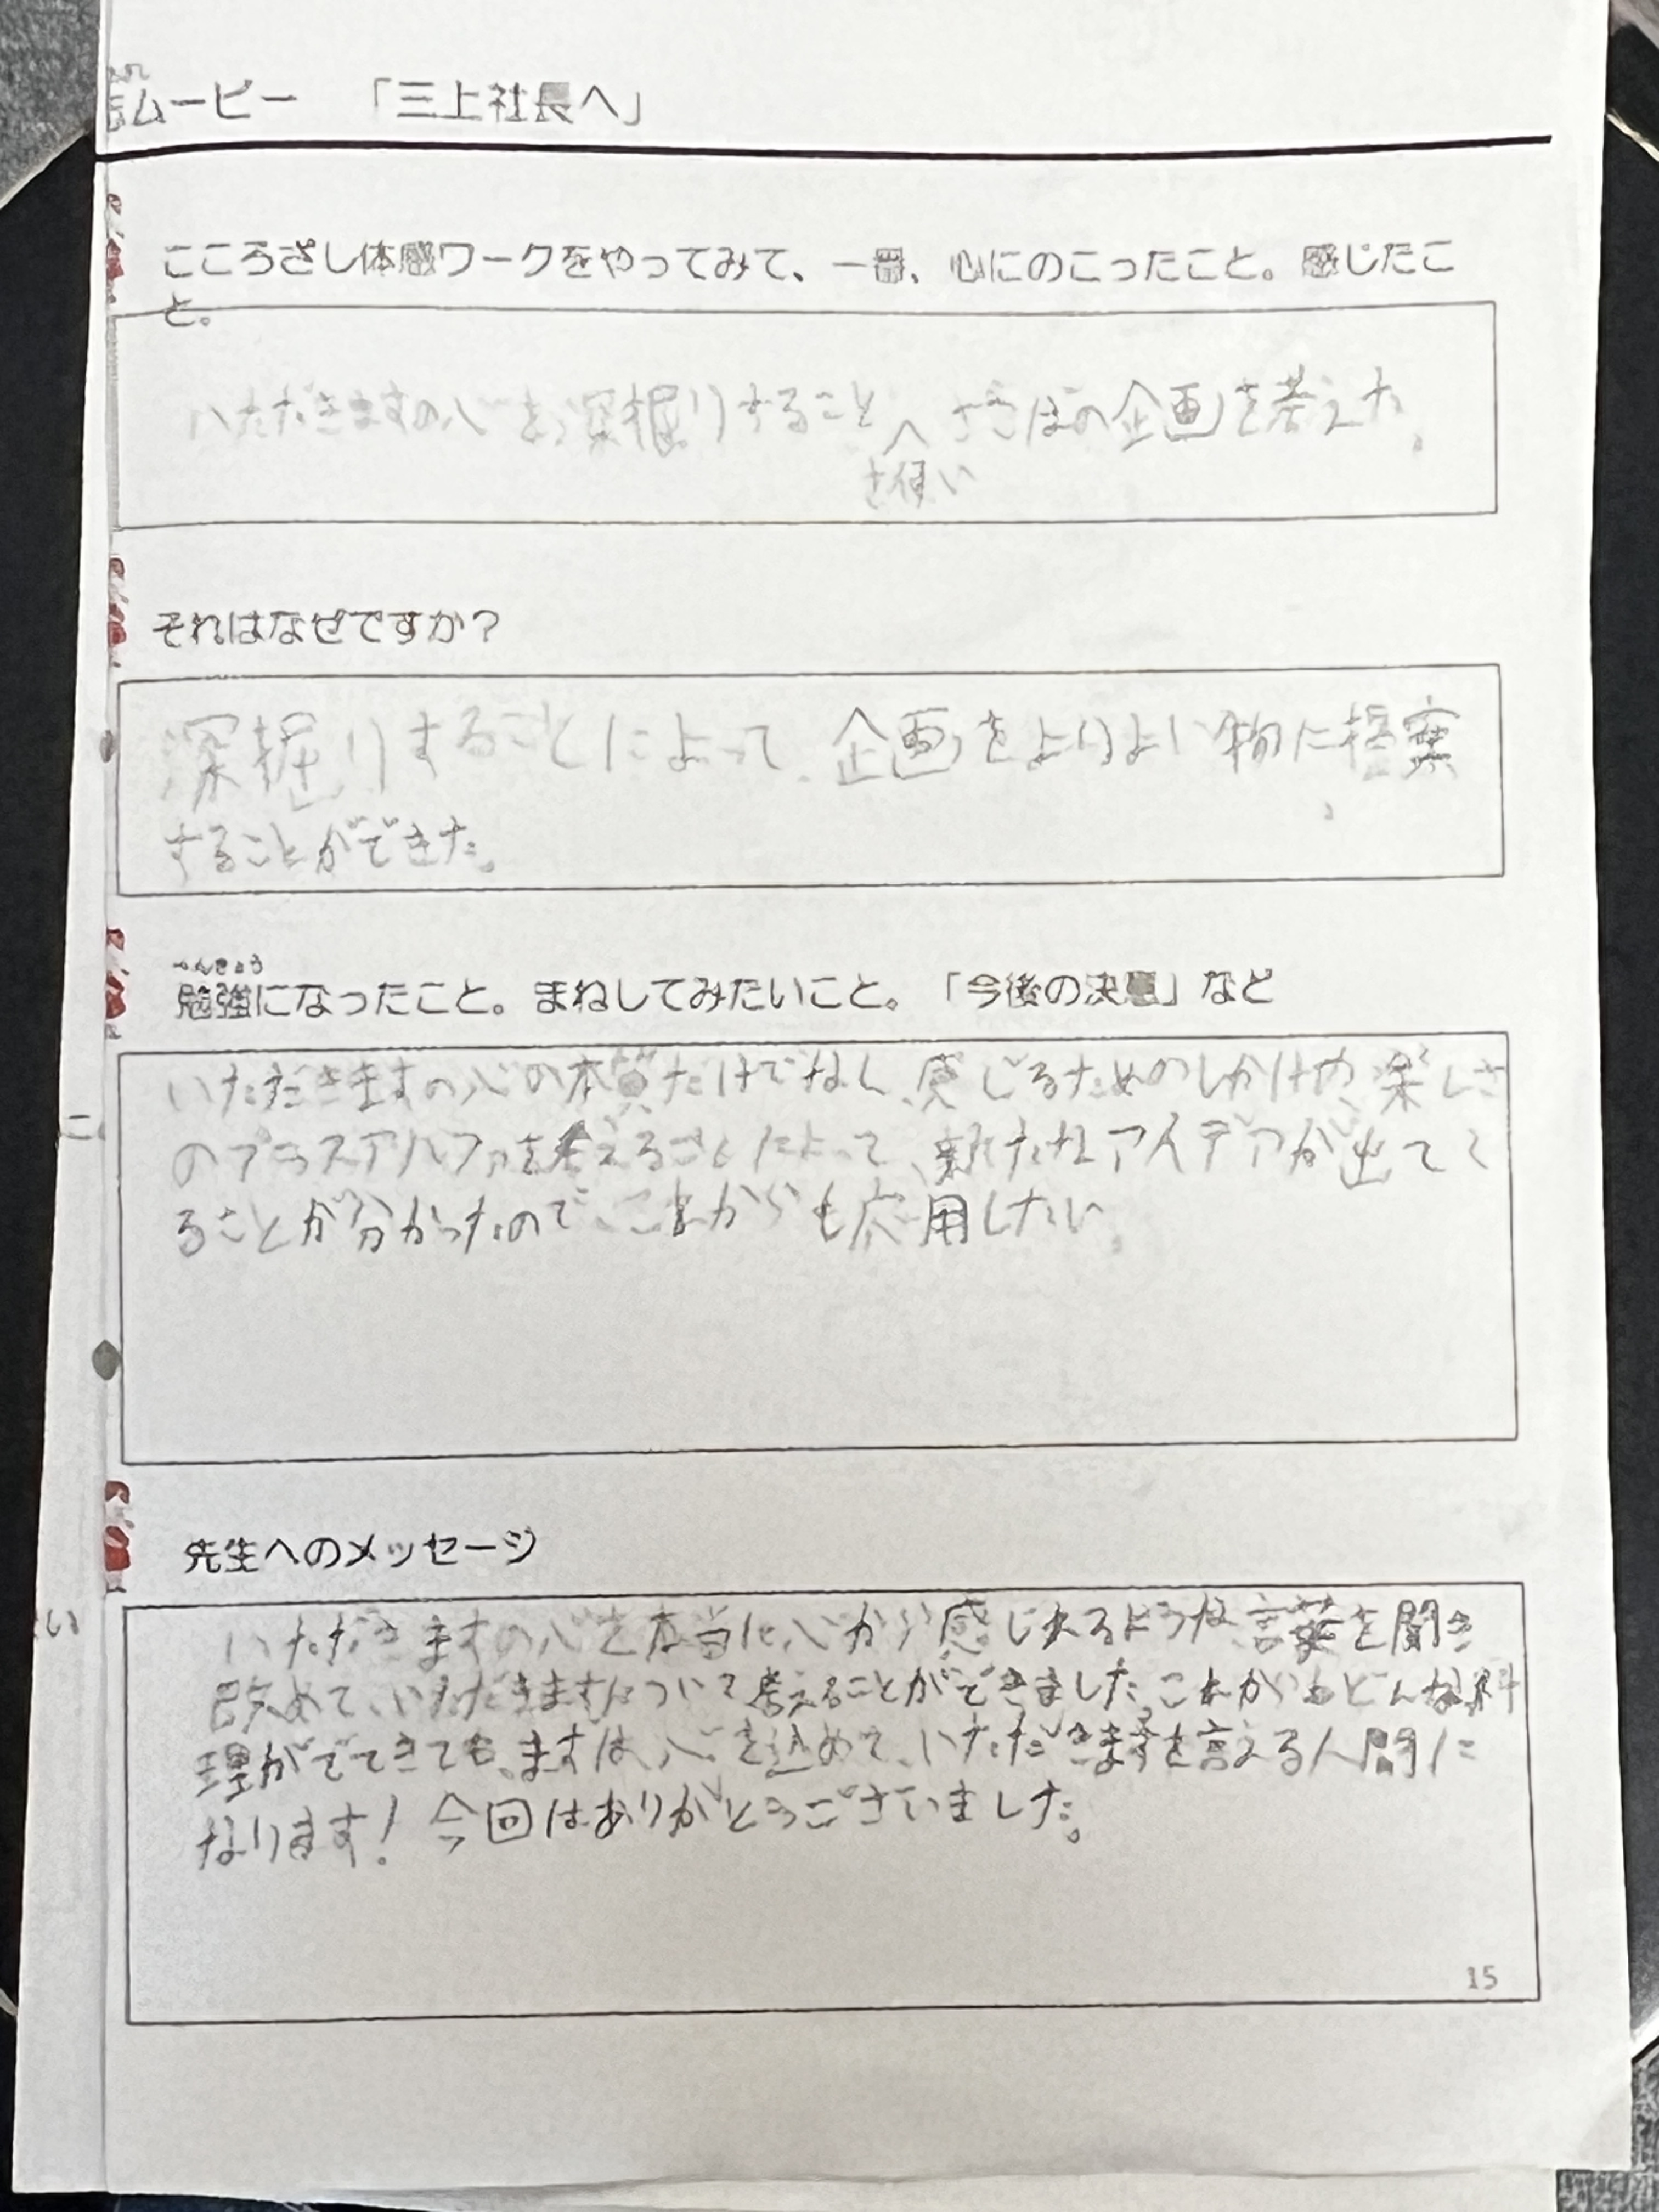 ムービー 「三上社長へ」
こころざし体感ワークをやってみて、一番、心にのこったこと。感じたこ
と。
いただきますの心を深掘りすること さくらぼの企画を考えた。
を使い
それはなぜですか?
深掘りすることによって、企画をよりよい物に提案
することができた。
べんきょう
勉強になったこと。まねしてみたいこと。「今後の決意」など
いただきますの心の本質だけでなく、感じるためのしかけや、楽しさ
のプラスアルファを考えることによって、新たなアイデアが出てく
ることが分かったので、これからも応用したい。
先生へのメッセージ
いただきますの心を本当に心から感じれるような言葉を聞き
改めて、いただきますについて考えることができました。これからもどんな料
理がでてきても、まずは、心を込めて、いただきますを言える人間に
なります! 今回はありがとうございました。
15